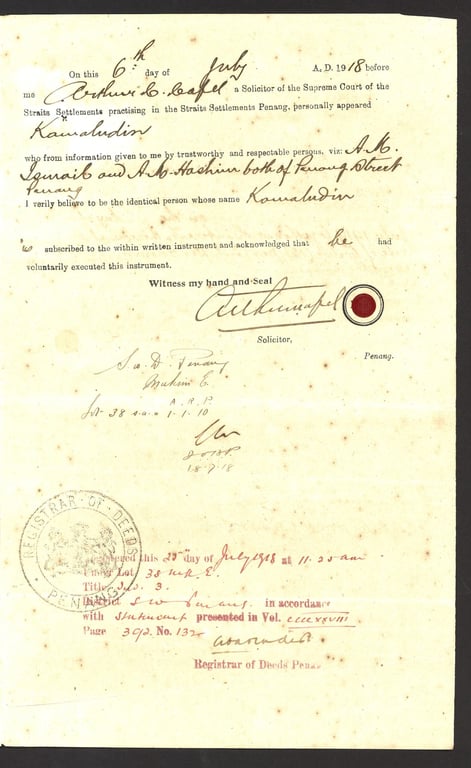 On this 6th day of July A. D. 1918 before
me Arthur C. Capel a Solicitor of the Supreme Court of the
Straits Settlements practising in the Straits Settlements Penang, personally appeared
Kamaludin
who from information given to me by trustworthy and respectable persons, viz: A. M.
Ismail and A. M. Hashim both of Penang Street
Penang
I verily believe to be the identical person whose name Kamaludin
is subscribed to the within written instrument and acknowledged that he had
voluntarily executed this instrument.
Witness my hand and Seal
Solicitor,
Penang.
S. W. D. Penang
Mukim E.
A. R. P.
lot 38 1. 1. 10
18-7-18
REGISTRAR OF DEEDS
PENANG
this 23rd day of July 1918 at 11.25 am
Lot 38 Mk. E.
Title 3.
District S W Penang. in accordance
with Statement presented in Vol. CCCCXXVIII
Page 392. No. 132
Registrar of Deeds Penang